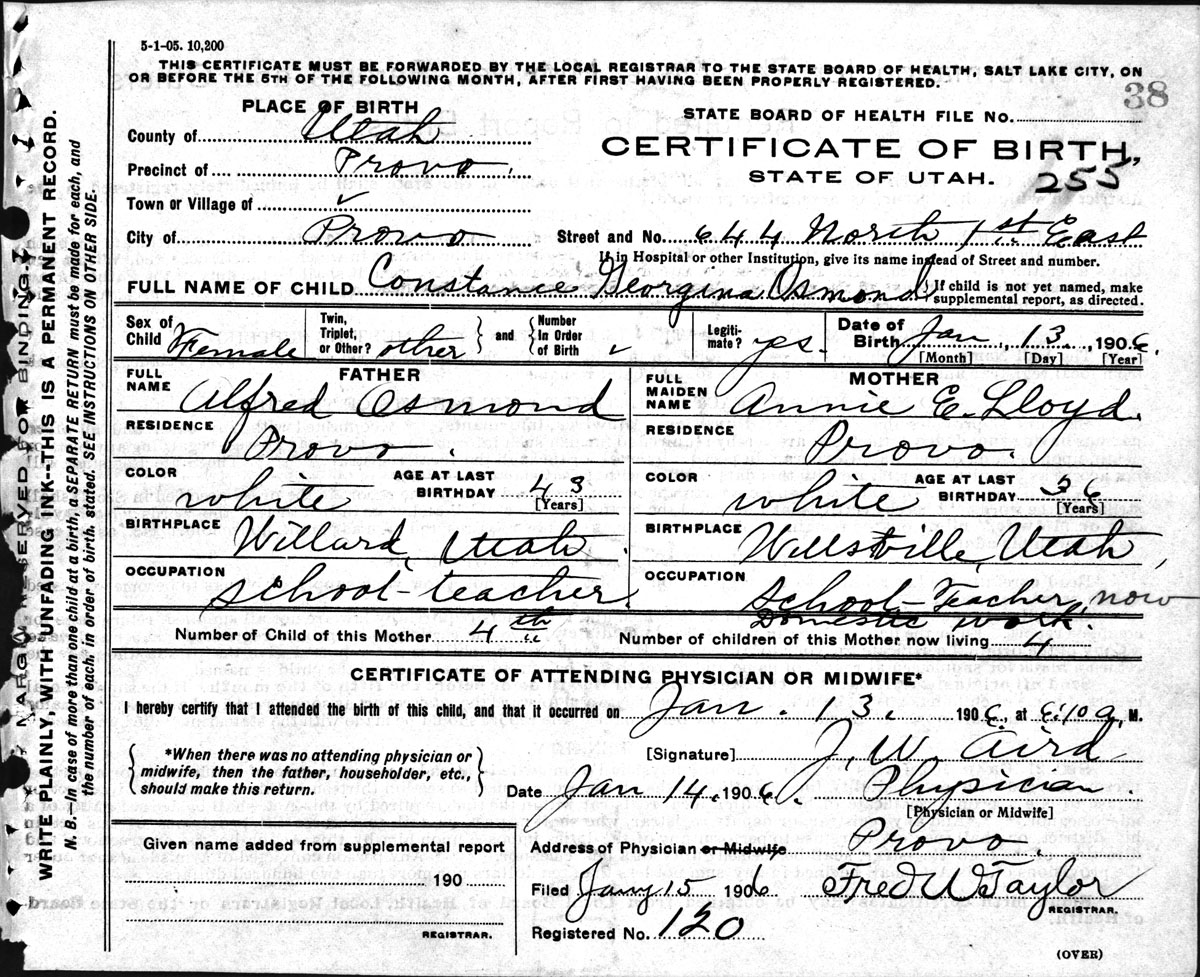 5-1-05. 10,200
THIS CERTIFICATE MUST BE FORWARDED BY THE LOCAL REGISTRAR TO THE STATE BOARD OF HEALTH, SALT LAKE CITY, ON
OR BEFORE THE 5TH OF THE FOLLOWING MONTH, AFTER FIRST HAVING BEEN PROPERLY REGISTERED.
38
PLACE OF BIRTH
County of Utah
Precinct of Provo.
Town or Village of
City of Provo
STATE BOARD OF HEALTH FILE No.
CERTIFICATE OF BIRTH,
STATE OF UTAH. 255
Street and No. 644 North 1st East
If in Hospital or other Institution, give its name instead of Street and number.
FULL NAME OF CHILD Constance Georgina Osmond
If child is not yet named, make
supplemental report, as directed.
Sex of Child Female
Twin, Triplet, or Other? other
and
Number In Order of Birth
Legitimate? yes.
Date of Birth Jan., 13., 1906.
[Month] [Day] [Year]
FATHER
FULL NAME Alfred Osmond
RESIDENCE Provo.
COLOR white
AGE AT LAST BIRTHDAY 43
[Years]
BIRTHPLACE Willard, Utah.
OCCUPATION School-teacher.
MOTHER
FULL MAIDEN NAME Annie E. Lloyd.
RESIDENCE Provo.
COLOR white
AGE AT LAST BIRTHDAY 36
[Years]
BIRTHPLACE Wellsville, Utah,
OCCUPATION School-Teacher, now
Domestic work.
Number of Child of this Mother 4th
Number of children of this Mother now living 4
CERTIFICATE OF ATTENDING PHYSICIAN OR MIDWIFE*
I hereby certify that I attended the birth of this child, and that it occurred on Jan. 13, 1906, at 6:10 a. M.
*When there was no attending physician or
midwife, then the father, householder, etc.,
should make this return.
[Signature] J. W. Aird
Date Jan 14. 1906. Physician.
[Physician or Midwife]
Address of Physician or Midwife Provo,
Given name added from supplemental report
190
REGISTRAR.
Filed Jany 15 1906 Fred W Taylor
REGISTRAR.
Registered No. 120
(OVER)
MARGIN RESERVED FOR BINDING.
WRITE PLAINLY, WITH UNFADING INK--THIS IS A PERMANENT RECORD.
N. B. In case of more than one child at a birth, a SEPARATE RETURN must be made for each, and
the number of each, in order of birth, stated. SEE INSTRUCTIONS ON OTHER SIDE.